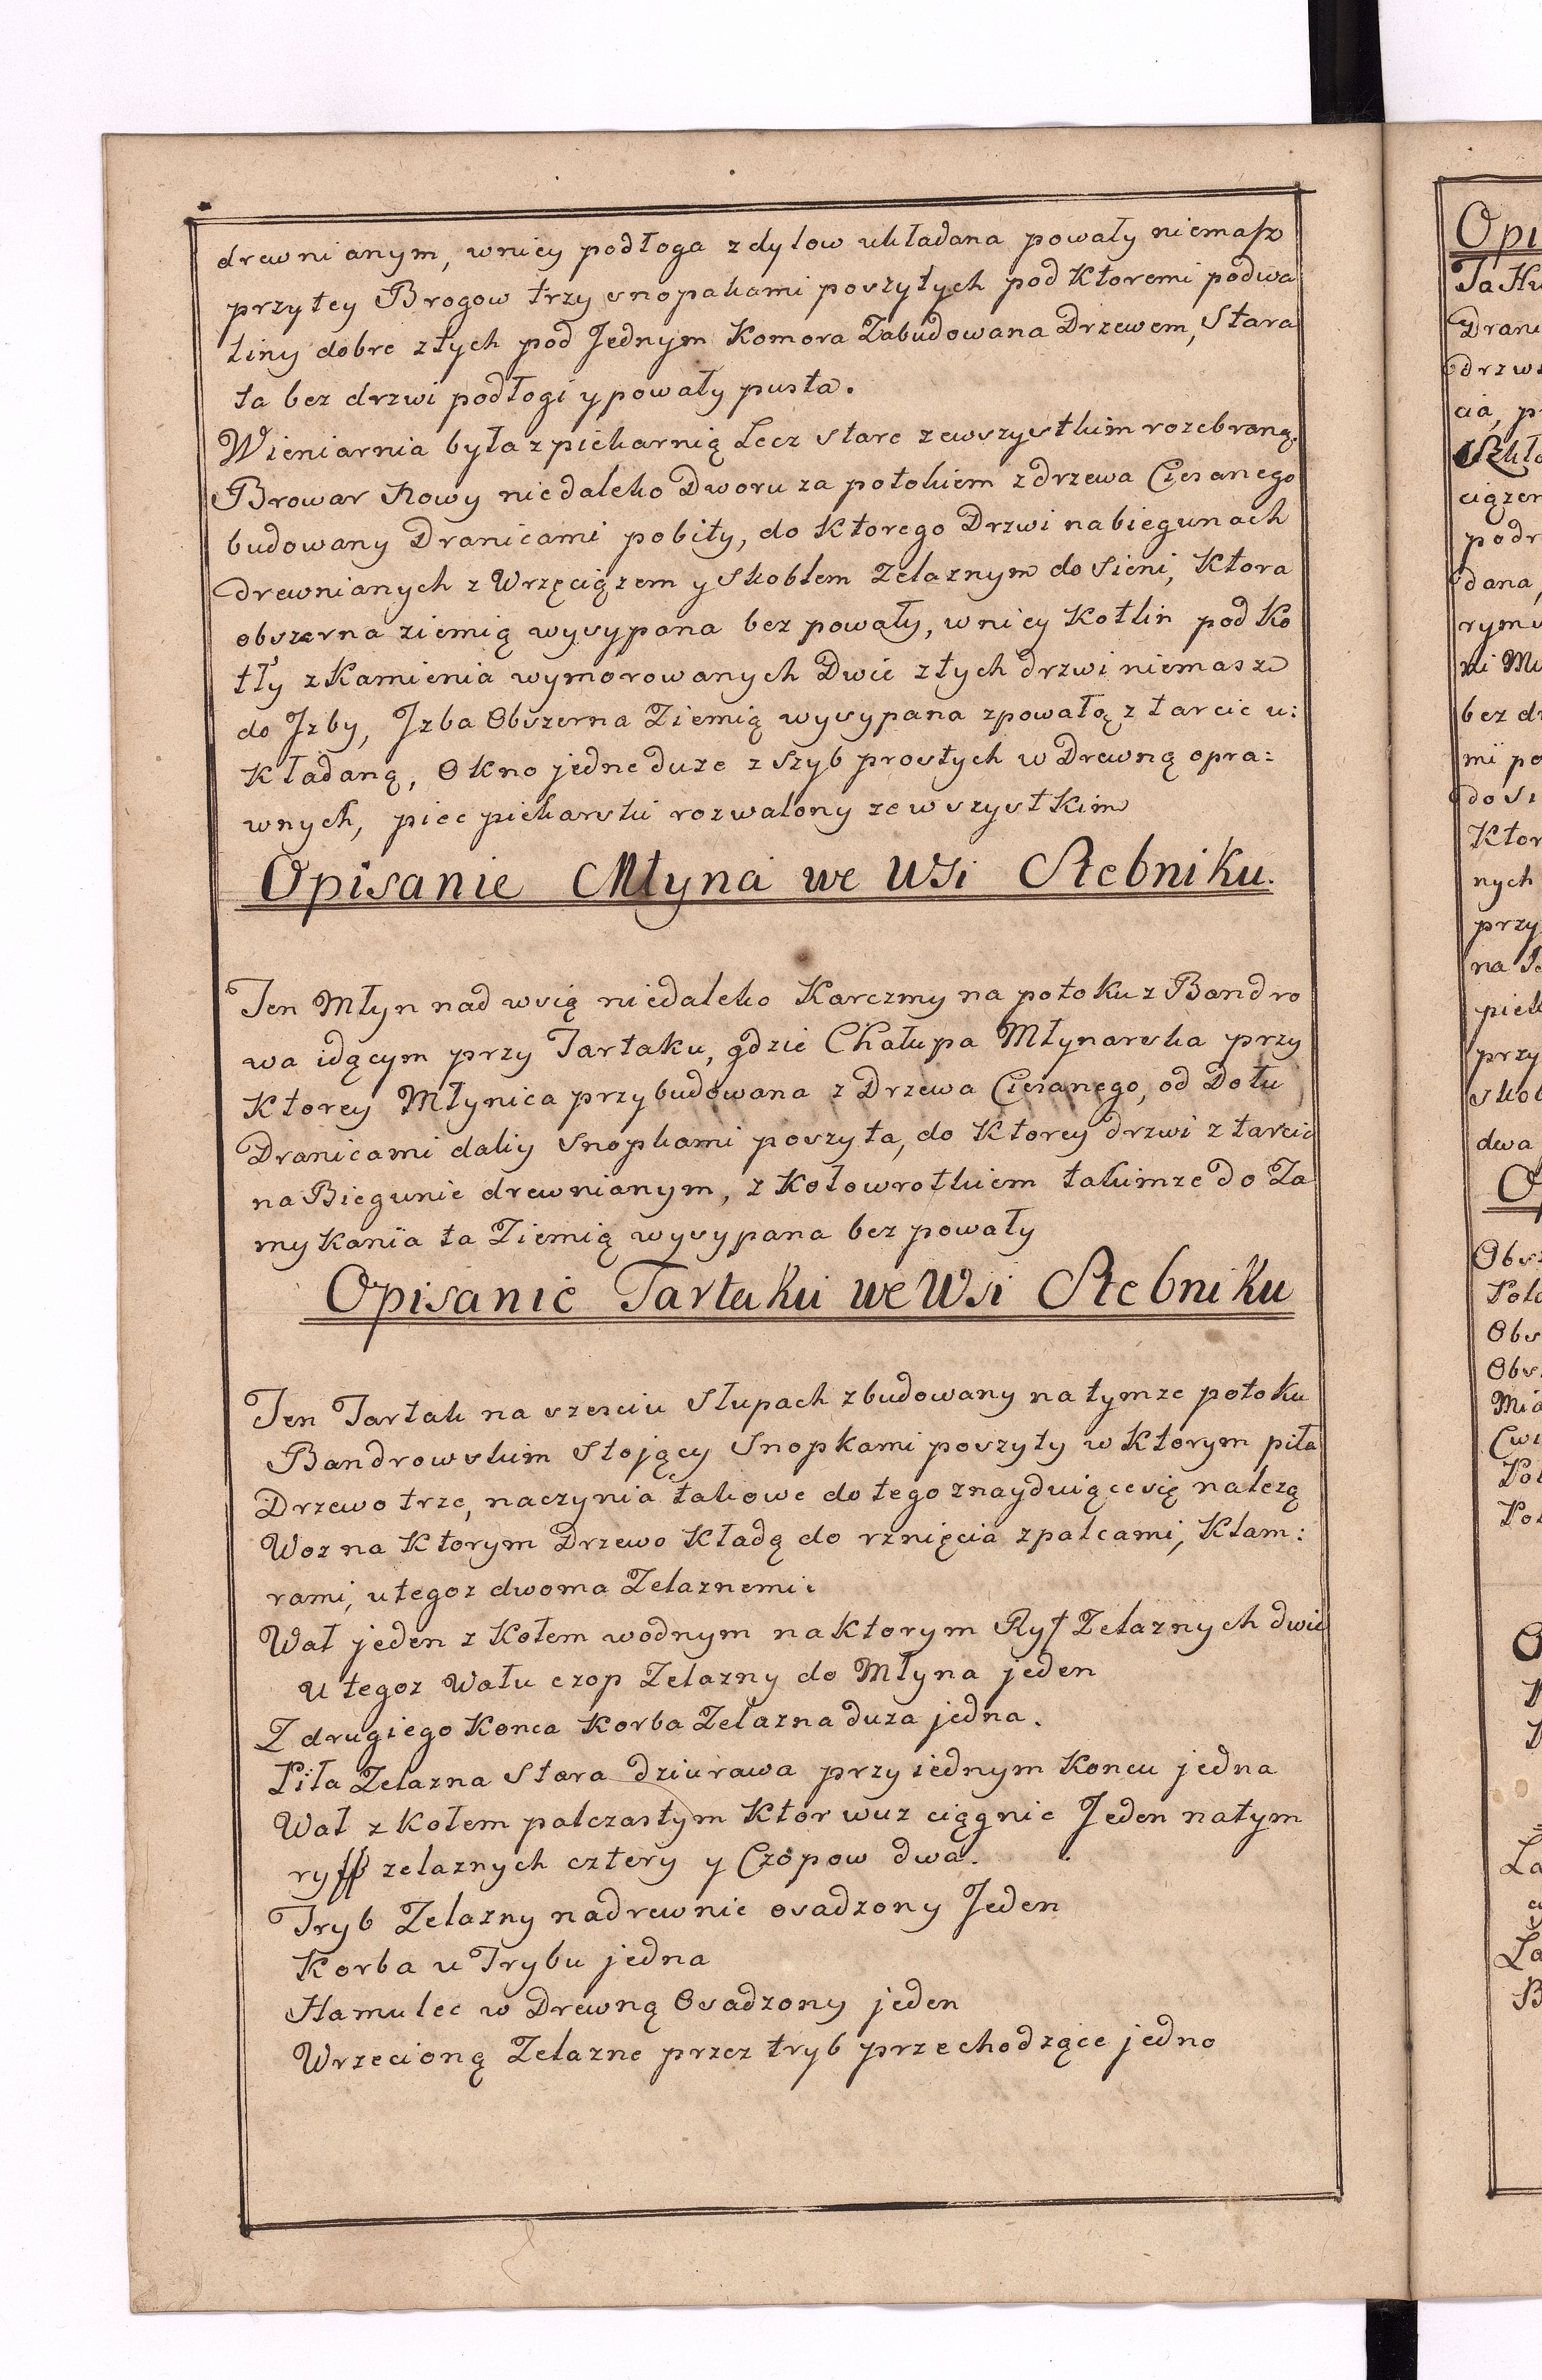 drewnianym, wniey podłoga z dylow układana powały niemasz
przytey Brogow trzy snopakami poszytych pod Ktoremi podwa
liny dobre z tych pod Jednym Komora Zabudowana Drzewem, Stara
ta bez drzwi podłogi y powały pusta.
Wieniarnia była z piekarnią Lecz stare zewszystkim rozebraną.
Browar Nowy niedaleko Dworu za potokiem z drzewa Ciesanego
budowany Dranicami pobity, do Ktorego Drzwi na biegunach
drewnianych z Wrzęciązem y Skoblem Zelaznym do Sieni, Ktora
obszerna ziemią wysypana bez powały, w niey Kotlin pod Ko
tły z Kamienia wymorowanych Dwie z tych drzwi niemasz
do Jzby, Jzba Obszerna Ziemią wysypana z powałą z tarcic u:
Kładaną, Okno jedne duze z Szyb prostych w Drewną opra:
wnych, piec piekarski rozwalony ze wszystkim
Opisanie Młyna we Wsi Stebniku.
Ten Młyn nad wsią niedaleko Karczmy na potoku z Bandro
wa idącym przy Tartaku, gdzie Chałupa Młynarska przy
Ktorey Młynica przybudowana z Drzewa Ciesanego, od Dołu
Dranicami daliy Snopkami poszyta, do Ktorey drzwi z tarcic
na Biegunie drewnianym, z Kołowrotkiem takimze do Za
mykania ta Ziemią wysypana bez powały
Opisanie Tartaku we Wsi Stebniku
Ten Tartak na szesciu Słupach zbudowany na tymze potoku
Bandrowskim Stojący Snopkami poszyty w Ktorym piła
Drzewo trze, naczynia takowe do tego znayduiące się nalezą
Woz na Ktorym Drzewo Kładą do rznięcia z palcami, Klam:
rami, u tegoz dwoma Zelaznemi.
Wał jeden z Kołem wodnym na ktorym Ryf Zelaznych dwie
U tegoz Wału czop Zelazny do Młyna jeden
Z drugiego Konca Korba Zelazna duza jedna.
Piła Zelazna Stara dziurawa przy iednym Koncu jedna
Wał z Kołem palczastym Ktor wuz ciągnie Jeden na tym
ryff zelaznych cztery y Czopow dwa.
Tryb Zelazny na drewnie osadzony Jeden
Korba u Trybu jedna
Hamulec w Drewną Osadzony jeden
Wrzecioną Zelazne przez tryb przechodzące jedno